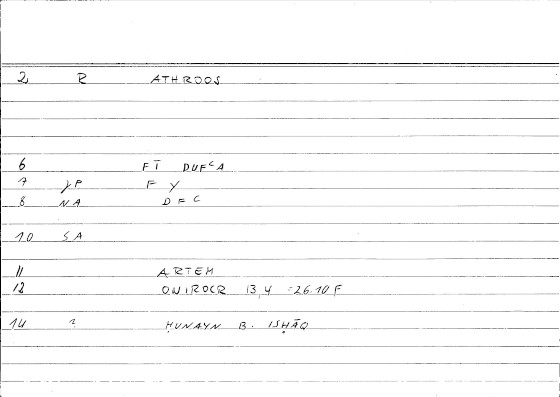 2 R ATHROOS
6 FĪ DUFʿA
7 γP F Y
8 NA D F C
10 SA
11 ARTEM
12 ONIROCR 13,4 =26.10F
14 ? ḤUNAYN B. ISḤĀQ